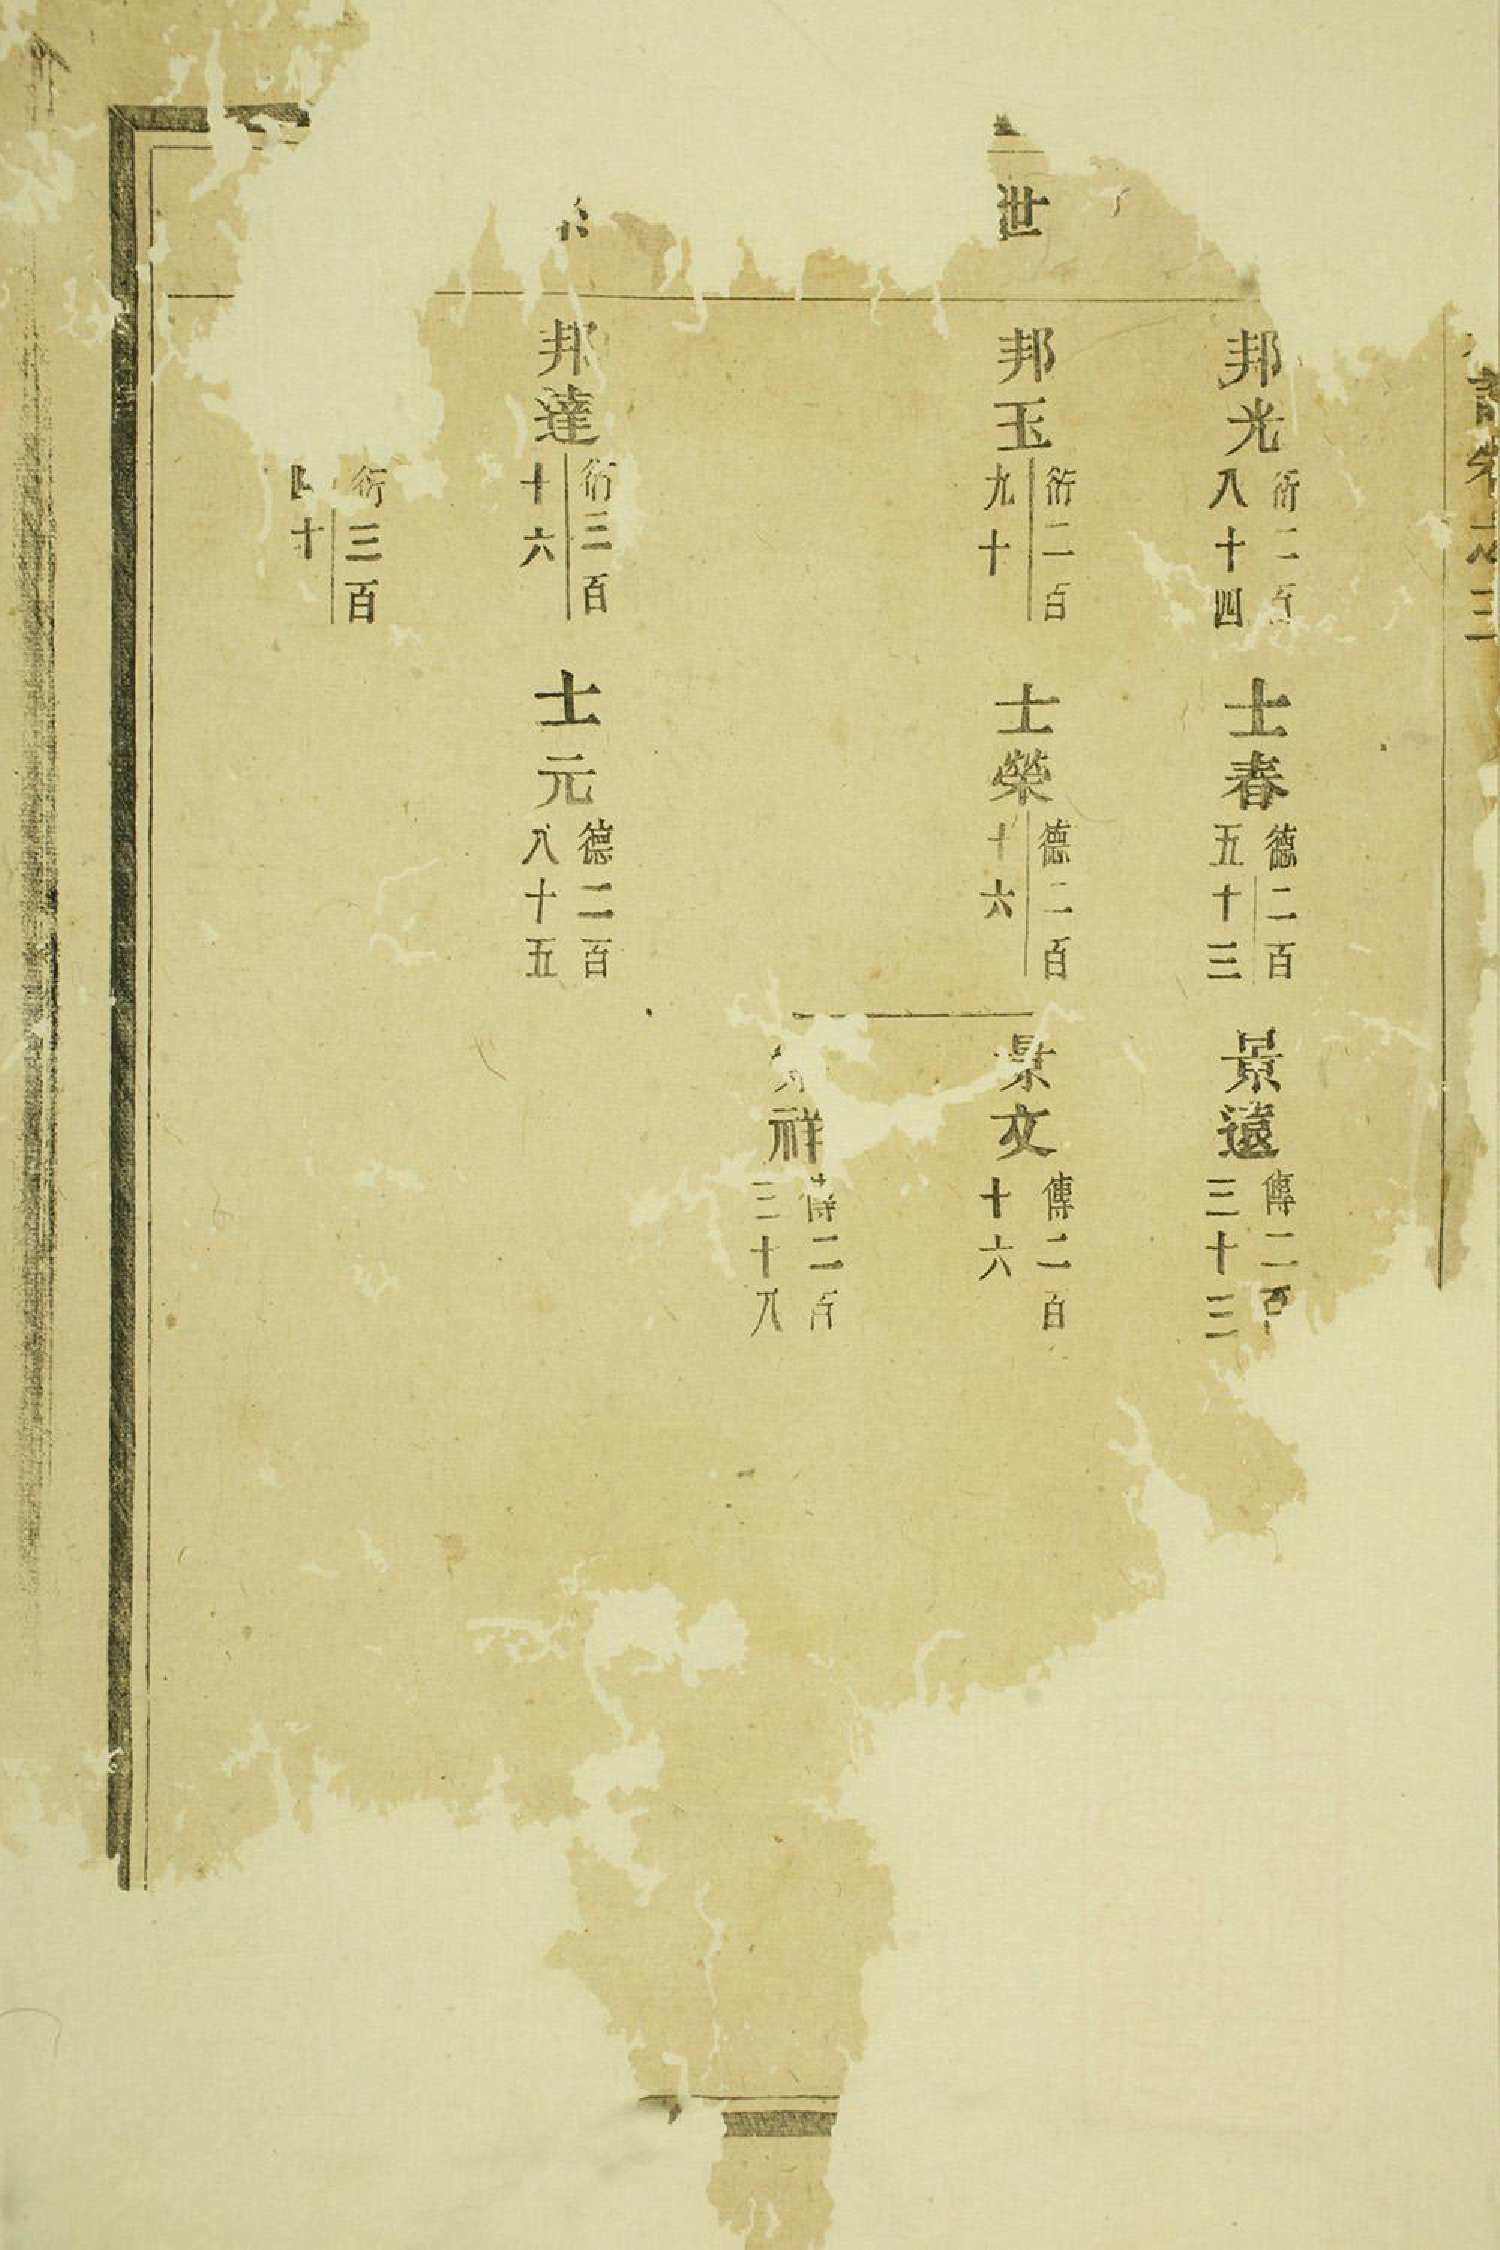 譜卷之三
世
邦光 衍二百八十四
士春 德二百五十三
景遠 傳二百三十三
邦玉 衍二百九十
士榮 德二百十六
景文 傳二百十六
祥 傳二百三十八
邦達 衍三百十六
士元 德二百八十五
衍三百 十